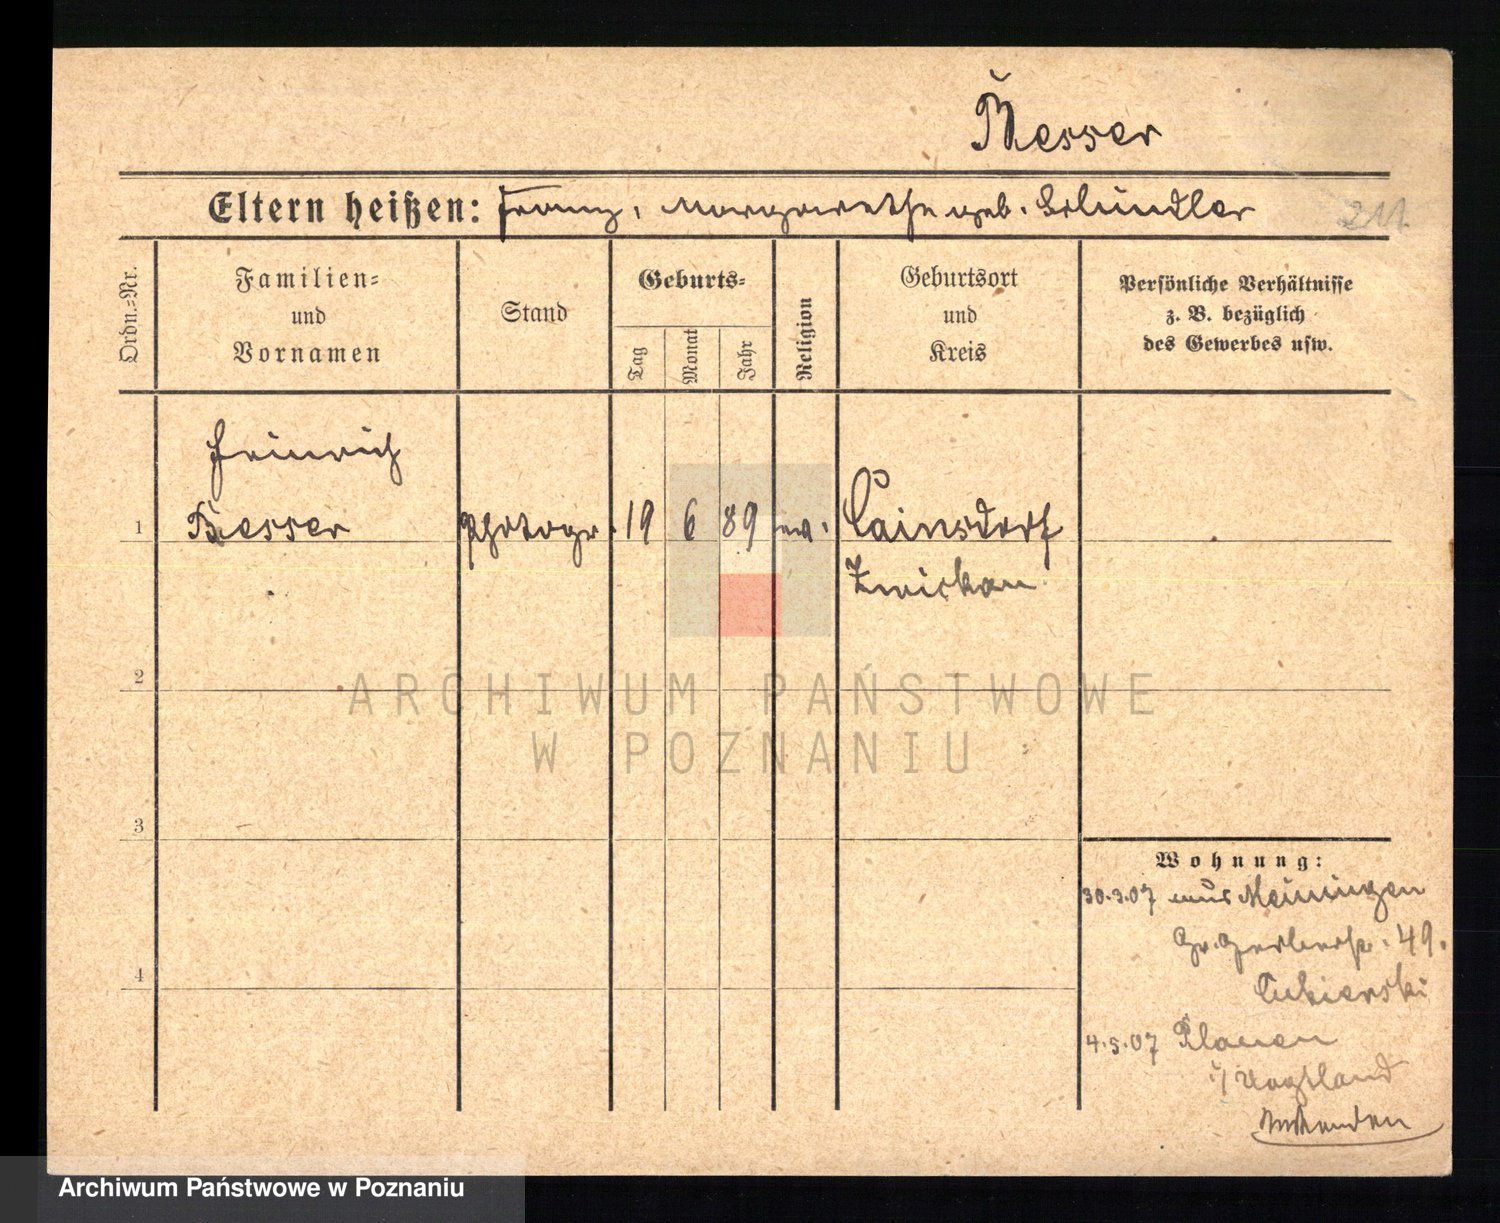 Besser
Eltern heißen: Franz, Margarethe geb. Schündler
211
Ordn.=Nr.
Familien=
und
Vornamen
Stand
Geburts=
Tag
Monat
Jahr
Religion
Geburtsort
und
Kreis
Persönliche Verhältnisse
z. B. bezüglich
des Gewerbes usw.
Heinrich
1 Besser Photogr. 19 6 89 ev. Cainsdorf
Zwickau
ARCHIWUM PAŃSTWOWE
W POZNANIU
2
3
4
Wohnung:
30.3.07 aus Meiningen
Gr. Gerberstr. 49.
Cukierski
4.5.07 Plauen
i/Vogtland
Archiwum Państwowe w Poznaniu